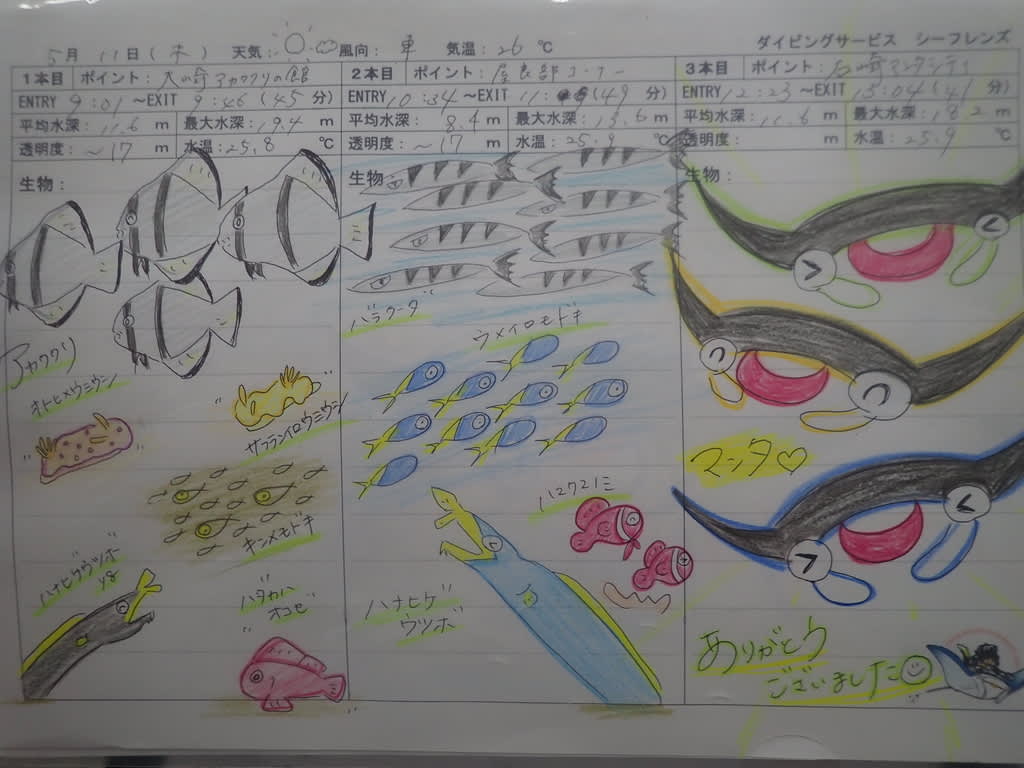 5月11日(木) 天気: 風向: 東 気温: 26℃ ダイビングサービス シーフレンズ
1本目 ポイント: 大崎アカククリの館
ENTRY 9:01~EXIT 9:46(45分)
平均水深: 11.6m 最大水深: 19.4m
透明度: ~17m 水温: 25.8℃
生物:
アカククリ
オトヒメウミウシ
サフランイロウミウシ
キンメモドキ
ハナヒゲウツボ
yg
ハダカハオコゼ
2本目 ポイント: 屋良部コーナー
ENTRY 10:34~EXIT 11: (49分)
平均水深: 8.4m 最大水深: 13.6m
透明度: ~17m 水温: 25.9℃
生物:
バラクーダ
ウメイロモドキ
ハマクマノミ
ハナヒゲ
ウツボ
3本目 ポイント: 石崎マンタシティ
ENTRY 12:23~EXIT 13:04(41分)
平均水深: 11.6m 最大水深: 18.2m
透明度: m 水温: 25.9℃
生物:
マンタ♡
ありがとう
ございました